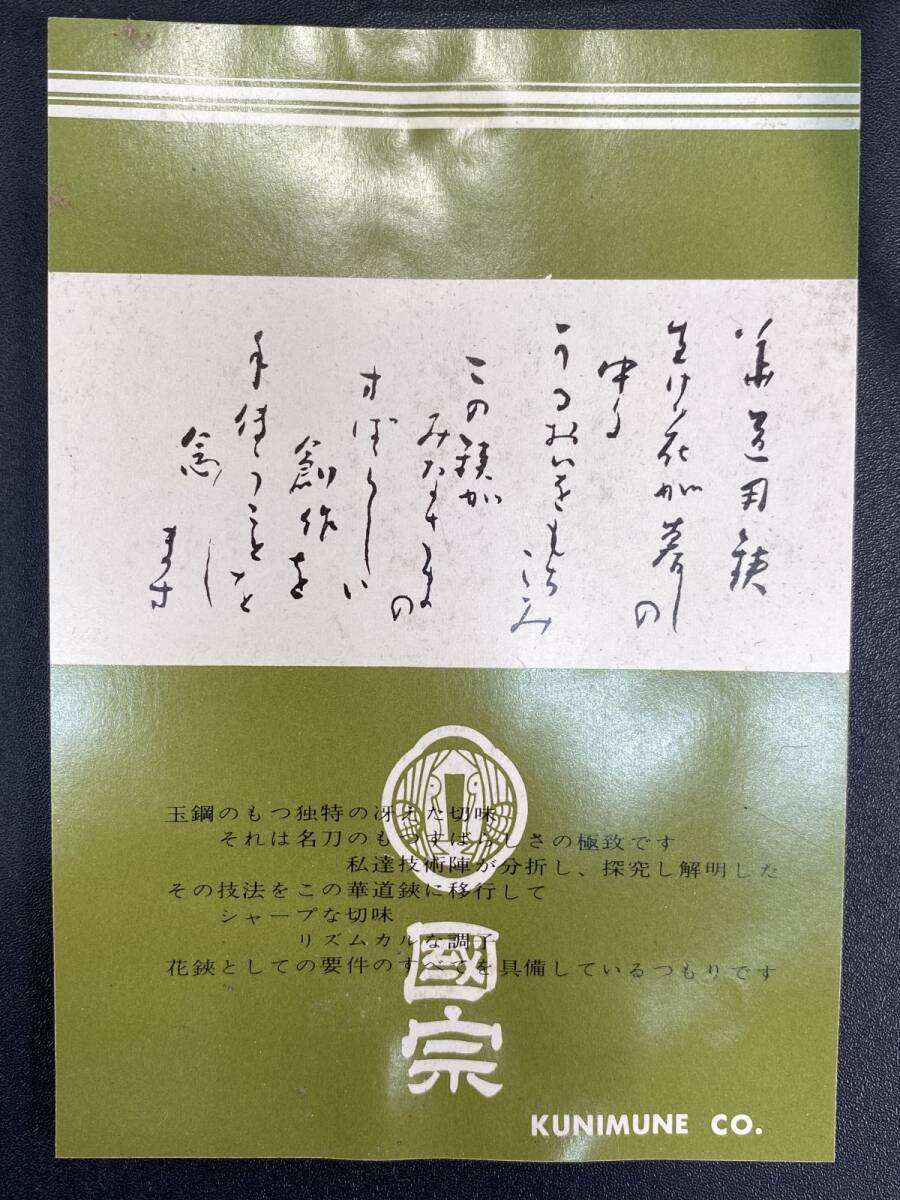 華道用鋏
生け花が暮しの
中に
うるおいをもちこみ
この鋏が
みなさまの
すばらしい
創作を
手傳うことを
念じ
ます
玉鋼のもつ独特の冴えた切味
それは名刀のもつすばらしさの極致です
私達技術陣が分折し、探究し解明した
その技法をこの華道鋏に移行して
シャープな切味
リズムカルな調子
花鋏としての要件のすべてを具備しているつもりです
國宗
KUNIMUNE CO.